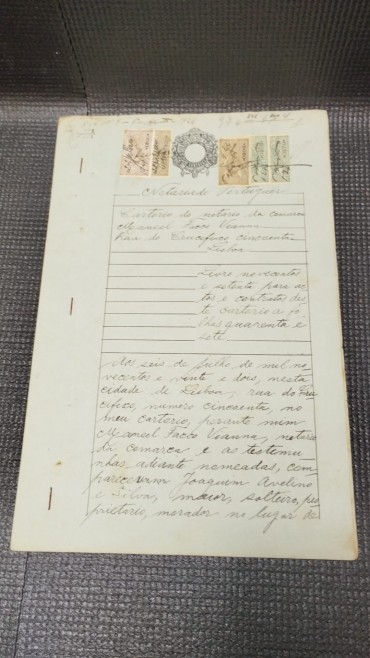 Notariado Portuguez
Cartorio do notario da comarca
Manuel Facco Vianna
Rua do Crucifixo, cincoenta
Lisboa
Livro novecentos
e setenta para ac-
tos e contratos des-
te cartorio a fo-
lhas quarenta e
sete
Aos seis de Julho de mil no-
vecentos e vinte e dois, nesta
cidade de Lisboa, rua do Cru-
cifixo, numero cincoenta, no
meu cartorio, perante mim
Manuel Facco Vianna, notario
da comarca e as testemu-
nhas adiante nomeadas, com-
pareceram Joaquim Avelino
e Silva, maior, solteiro, pro-
prietario, morador no lugar de